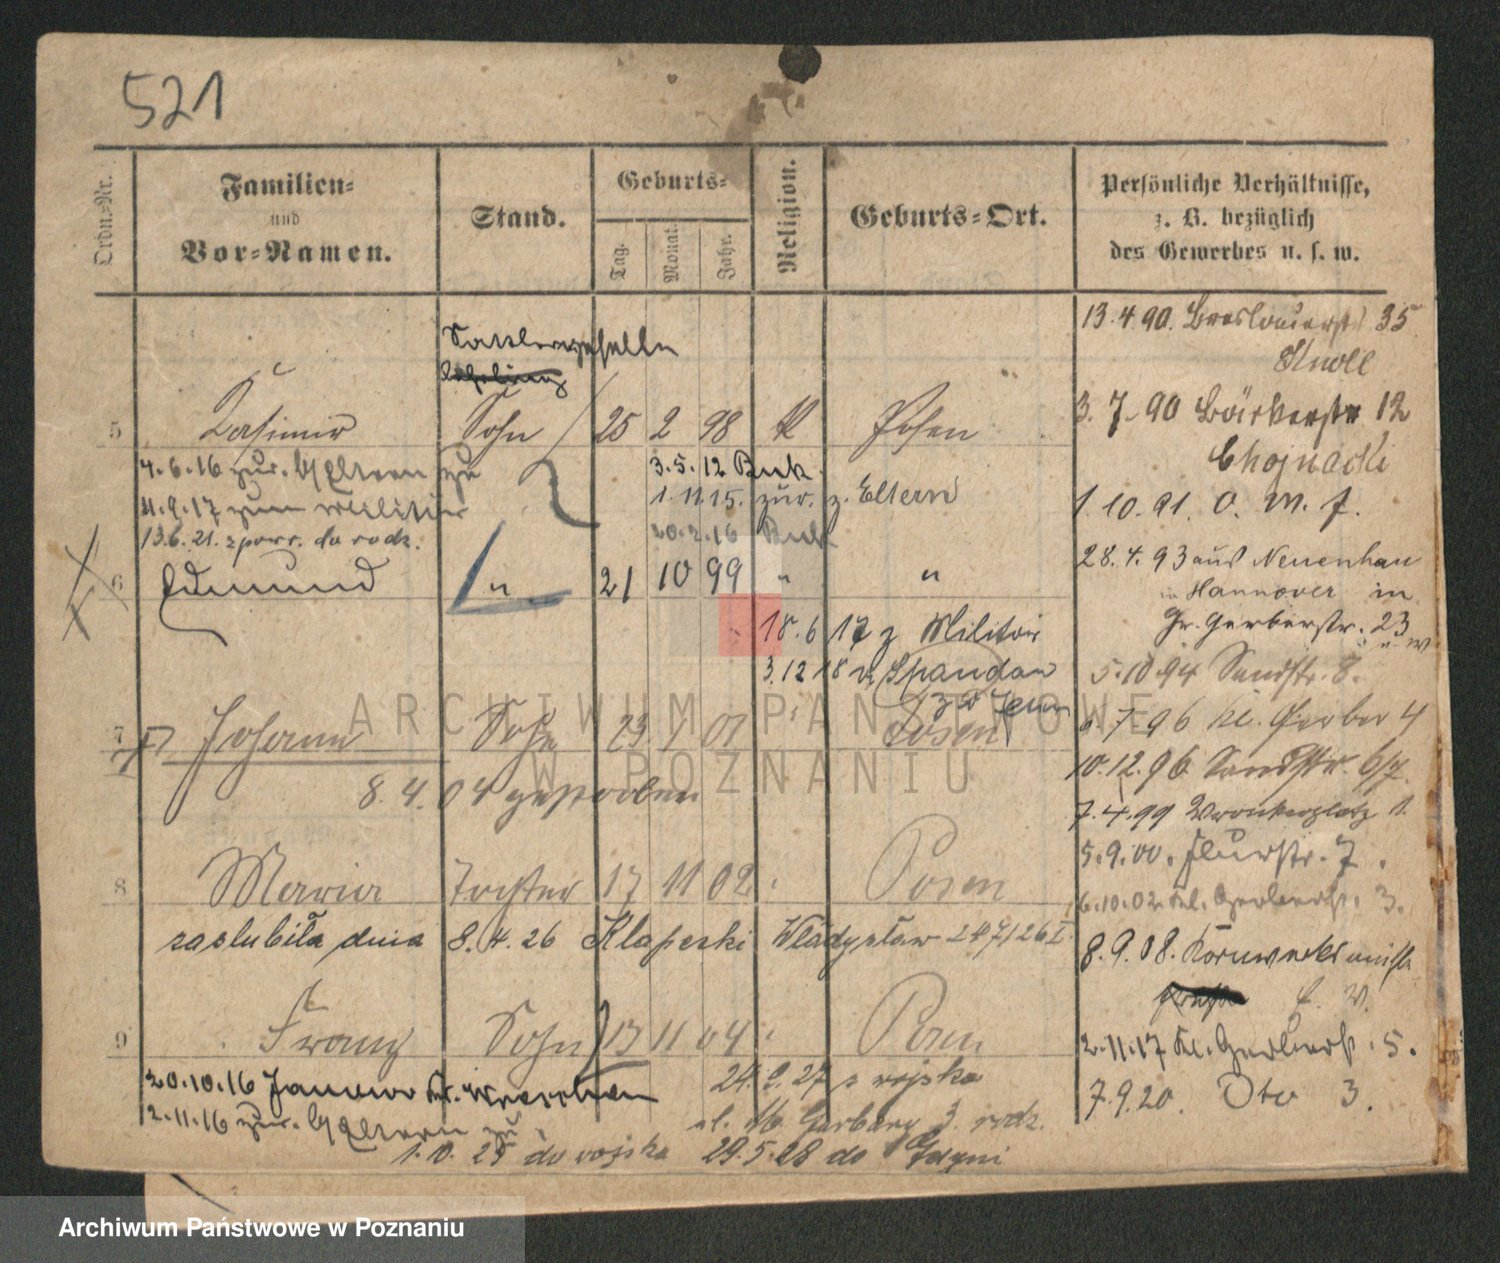 521
Ordn.-Nr.
Familien-
und
Vor-Namen.
Stand.
Geburts-
Tag.
Monat.
Jahr.
Religion.
Geburts-Ort.
Persönliche Verhältnisse,
z. B. bezüglich
des Gewerbes u. s. w.
Sattlergeselle
5 Kasimir Sohn 25 2 98 K Posen
4.6.16 zur. Eltern zu
3.5.12 Buk
1.11.15. zur. z. Eltern
11.9.17 zum Militär
20.2.16 Buk
13.6.21. z powr. do rodz.
6 Edmund " 21 10 99 " "
18.6 17 z Militär
3.12 18 v. Spandau
7 Johann Sohn 23 1 01 Posen
8.4.04 gestorben
8 Maria Tochter 17 11 02 Posen
zaślubiła dnia 8.4.26 Władysław 247/26 I
9 Franz Sohn 13 11 04 Posen
20.10.16 Janowo Kr. Wreschen
24.9.27 z wojska
2.11.16 zur. Eltern zu
ul. W. Garbary 3. rodz.
1.10.25 do wojska 29.5.28 do Gdyni
13.4.90. Breslauerstr 35
Knoll
3.7.90 Bäckerstr 12
Chojnacki
1.10.91. O. M. 7.
28.4.93 aus Neuenhau
in Hannover in
Gr. Gerberstr. 23
5.10.94 Sandstr. 8.
6.7.96 Kl. Gerber 4
10.12.96 Sandstr. 6/7.
7.4.99 Wronkerplatz 1.
5.9.00. Flurstr. 7.
6.10.02 Kl. Gerberstr. 3.
8.9.08.
2.11.17 Kl. Gerberstr. 5.
7.9.20. Dto 3.
ARCHIWUM PAŃSTWOWE
W POZNANIU
Archiwum Państwowe w Poznaniu